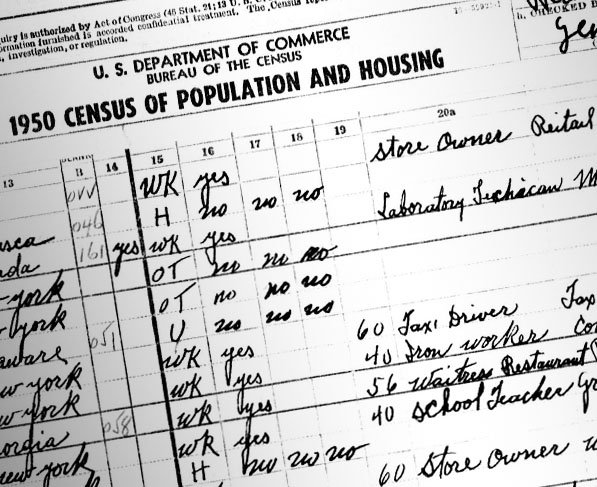 quiry is authorized by Act of Congress (46 Stat. 21; 13 U. S. C.
ormation furnished is accorded confidential treatment. The Census
, investigation, or regulation.
CHECKED B
U. S. DEPARTMENT OF COMMERCE
BUREAU OF THE CENSUS
1950 CENSUS OF POPULATION AND HOUSING
13 B 14 15 16 17 18 19 20a
0VV WK yes store Owner Reitail
046 H no no no Laboratory
asca 161 yes WK yes
ada OT no no no
-york OT no no no
-york U no no no 60 Taxi Driver Taxi
aware 051 WK yes 40 Iron worker Con
w york WK yes 56 Waitress Restaurant
w york WK yes 40 School Teacher Gr
orgia 058 WK yes
new york H no no no 60 Store Owner